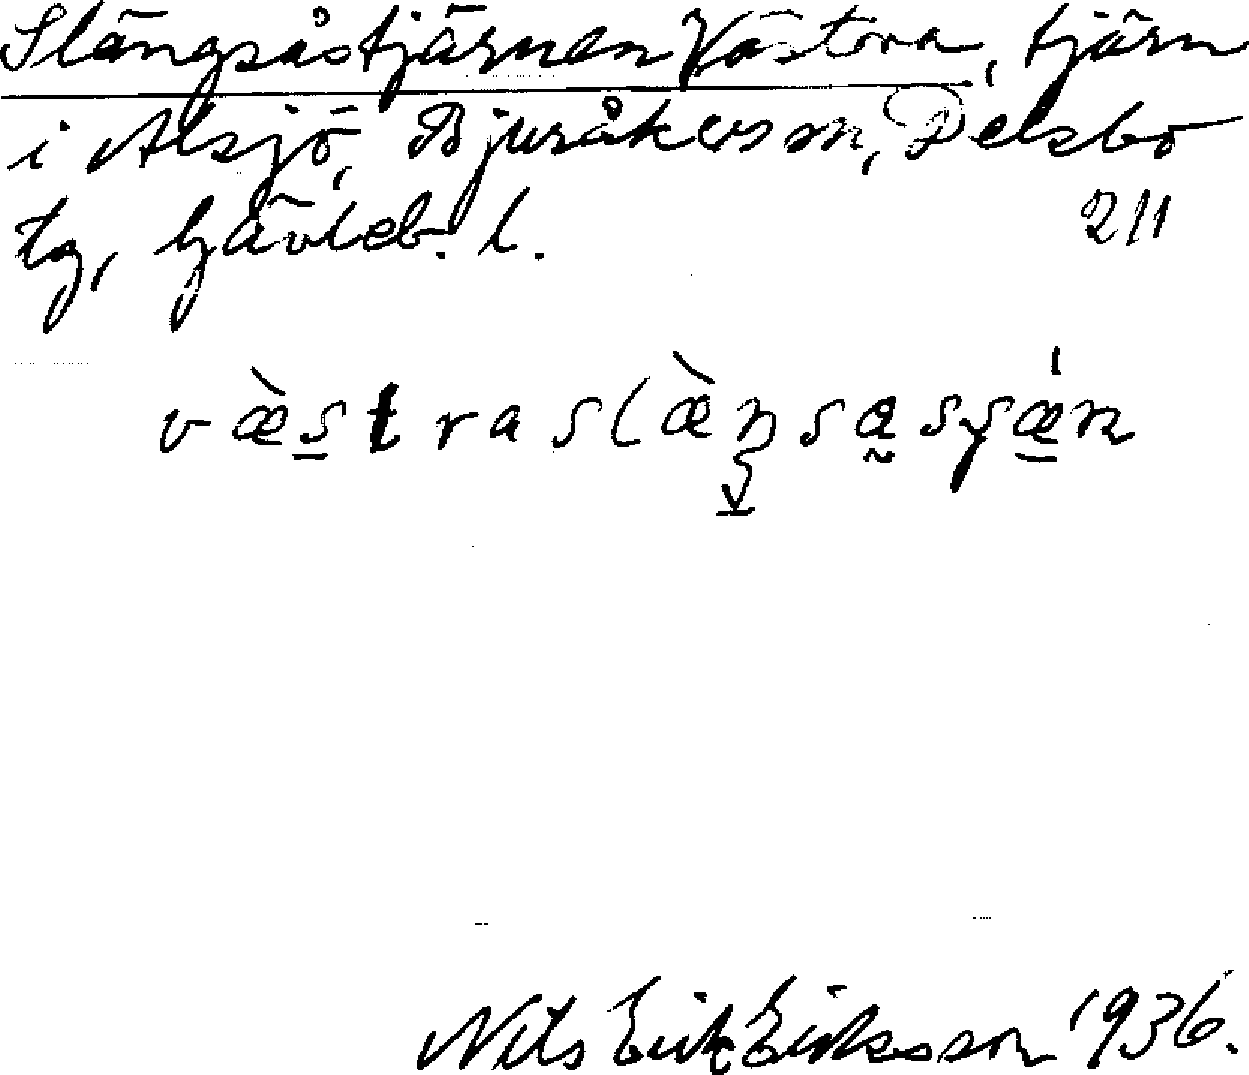 Slängsåstjärnen Västora, tjärn
i Alsjö, Bjuråkers sn, Delsbo
tg, Gävleb. l. 211
Nils Erik Eriksson 1936.